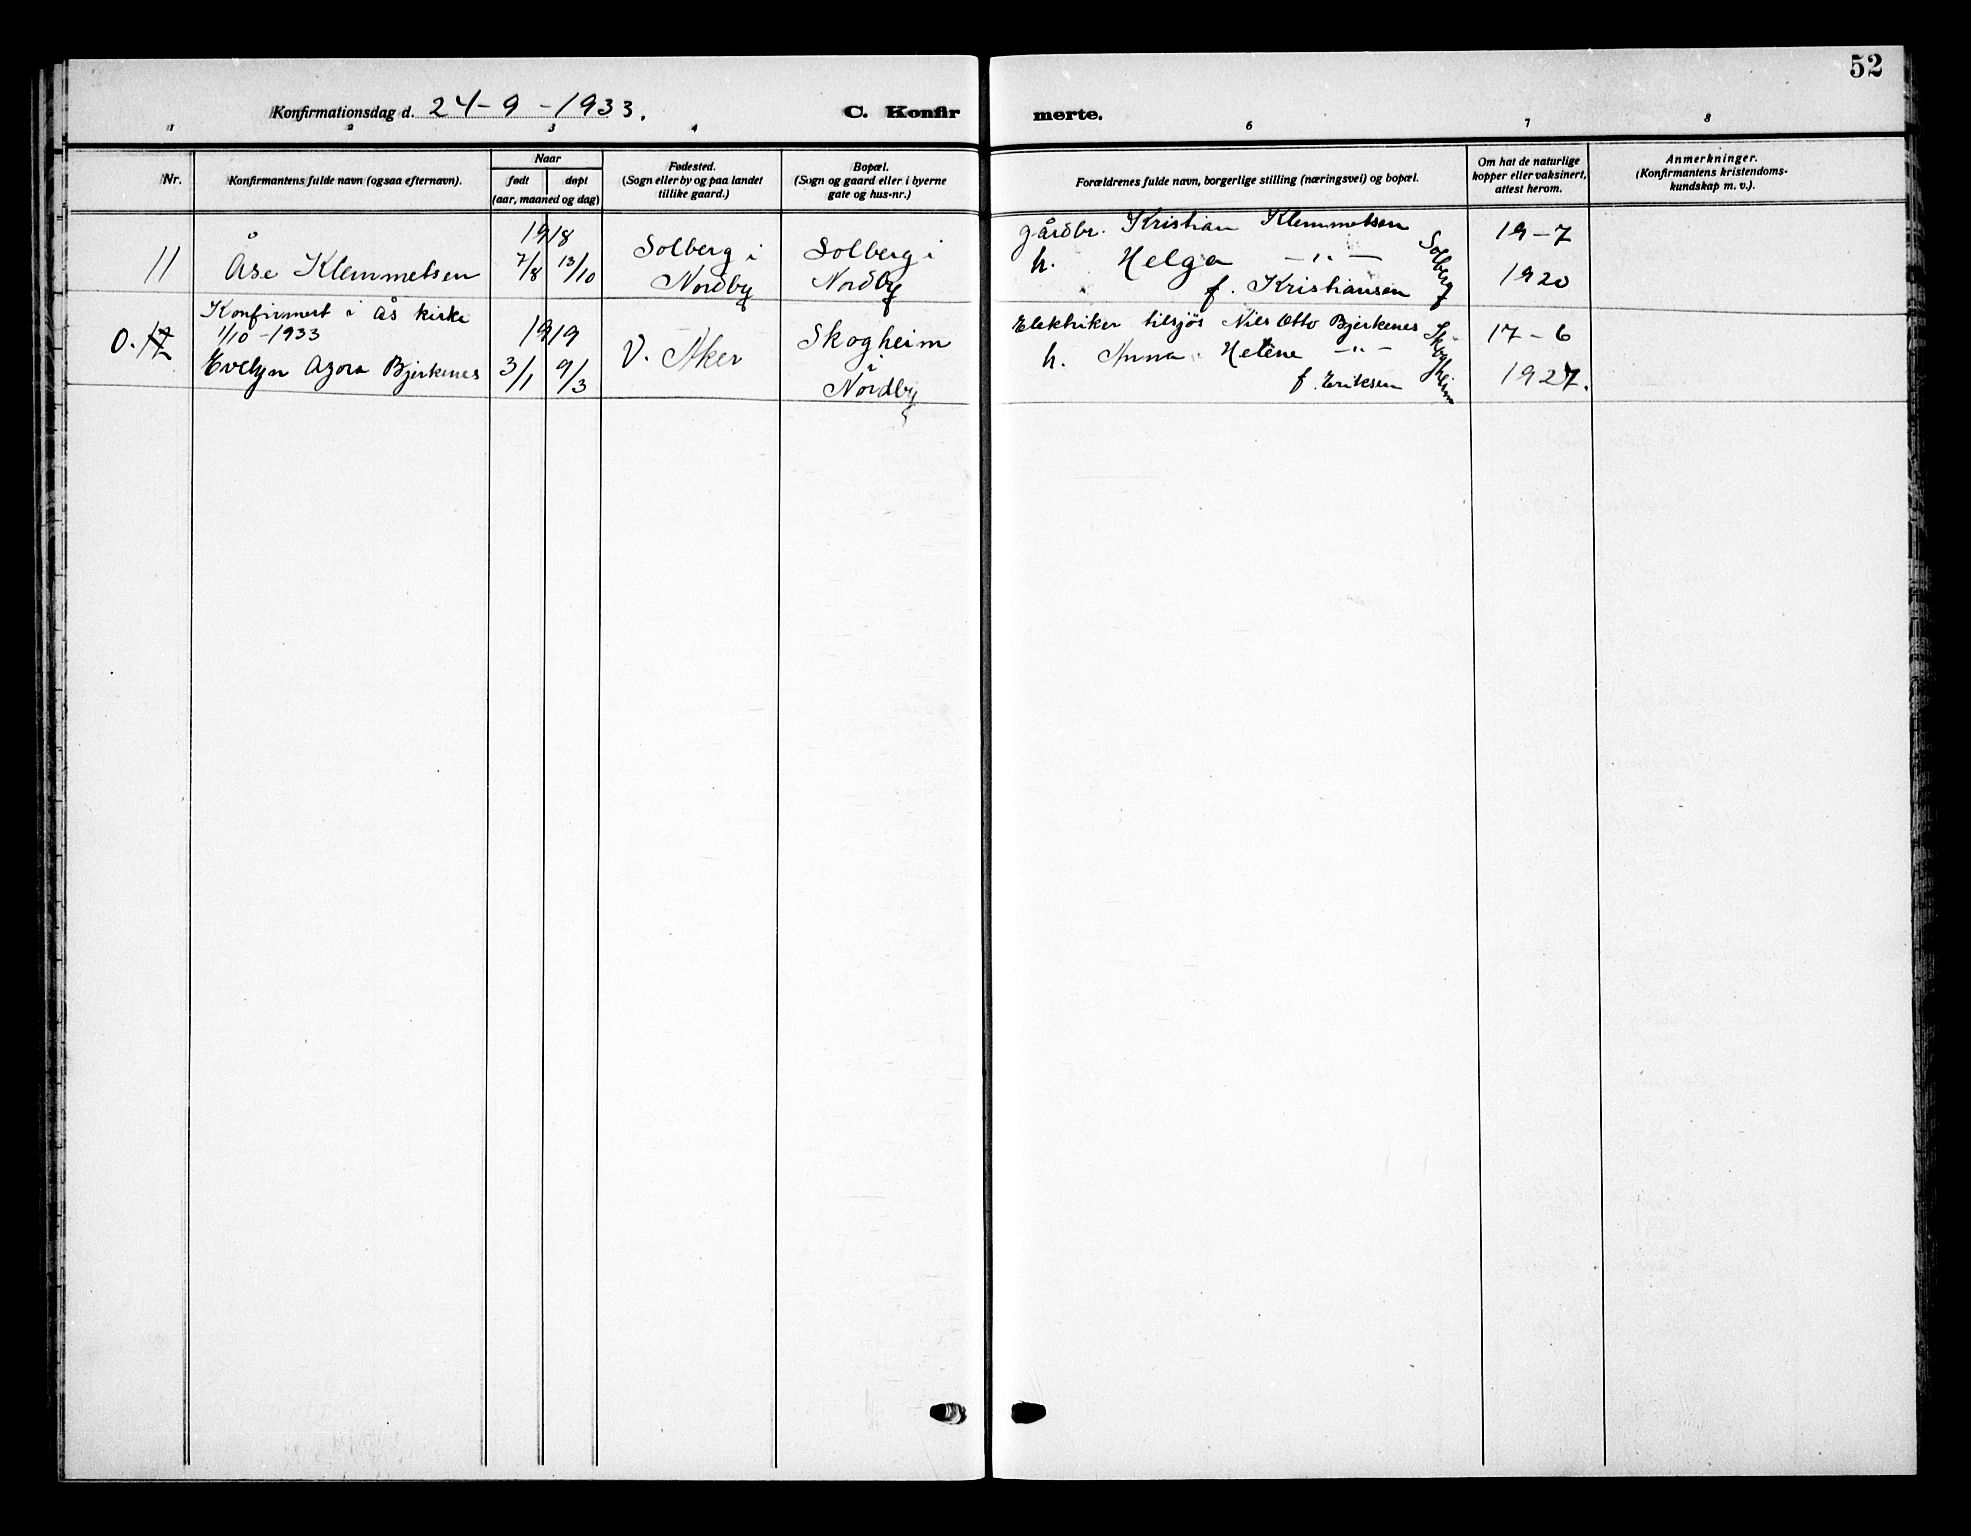 52
Konfirmationsdag d. 24-9-1933.
C. Konfir
merte.
1 2 3 4 6 7 8
Nr.
Konfirmantens fulde navn (ogsaa efternavn).
Naar
født døpt
(aar, maaned og dag)
Fødested.
(Sogn eller by og paa landet
tillike gaard.)
Bopæl.
(Sogn og gaard eller i byerne
gate og hus-nr.)
Forældrenes fulde navn, borgerlige stilling (næringsvei) og bopæl.
Om hat de naturlige
kopper eller vaksinert,
attest herom.
Anmerkninger.
(Konfirmantens kristendoms-
kundskap m. v.).
11
Åse Klemmetsen
1918
7/8 13/10
Solberg i
Nordby
Solberg i
Nordby
gårdbr. Kristian Klemmetsen
h. Helga -"-
f. Kristiansen
Solberg
19-7
1920
0. 12
Konfirmert i Ås kirke
1/10-1933
Evelyn Agora Bjerkenes
1919
3/1 9/3
V. Aker
Skogheim
i
Nordby
Elektriker tilsjøs Nils Otto Bjerkenes
h. Anna Helene -"-
f. Eriksen
Skogheim
17-6
1927.